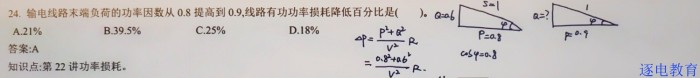 24. 输电线路末端负荷的功率因数从 0.8 提高到 0.9,线路有功功率损耗降低百分比是( )。
A.21% B.39.5% C.25% D.18%
答案:A
知识点:第 22 讲功率损耗。
ΔP = P²+Q² / V² R
= 0.8²+0.6² / V² R.
Q=0.6 S=1 φ
P=0.8
cosφ=0.8
Q=? 1 φ
P=0.9
逐电教育